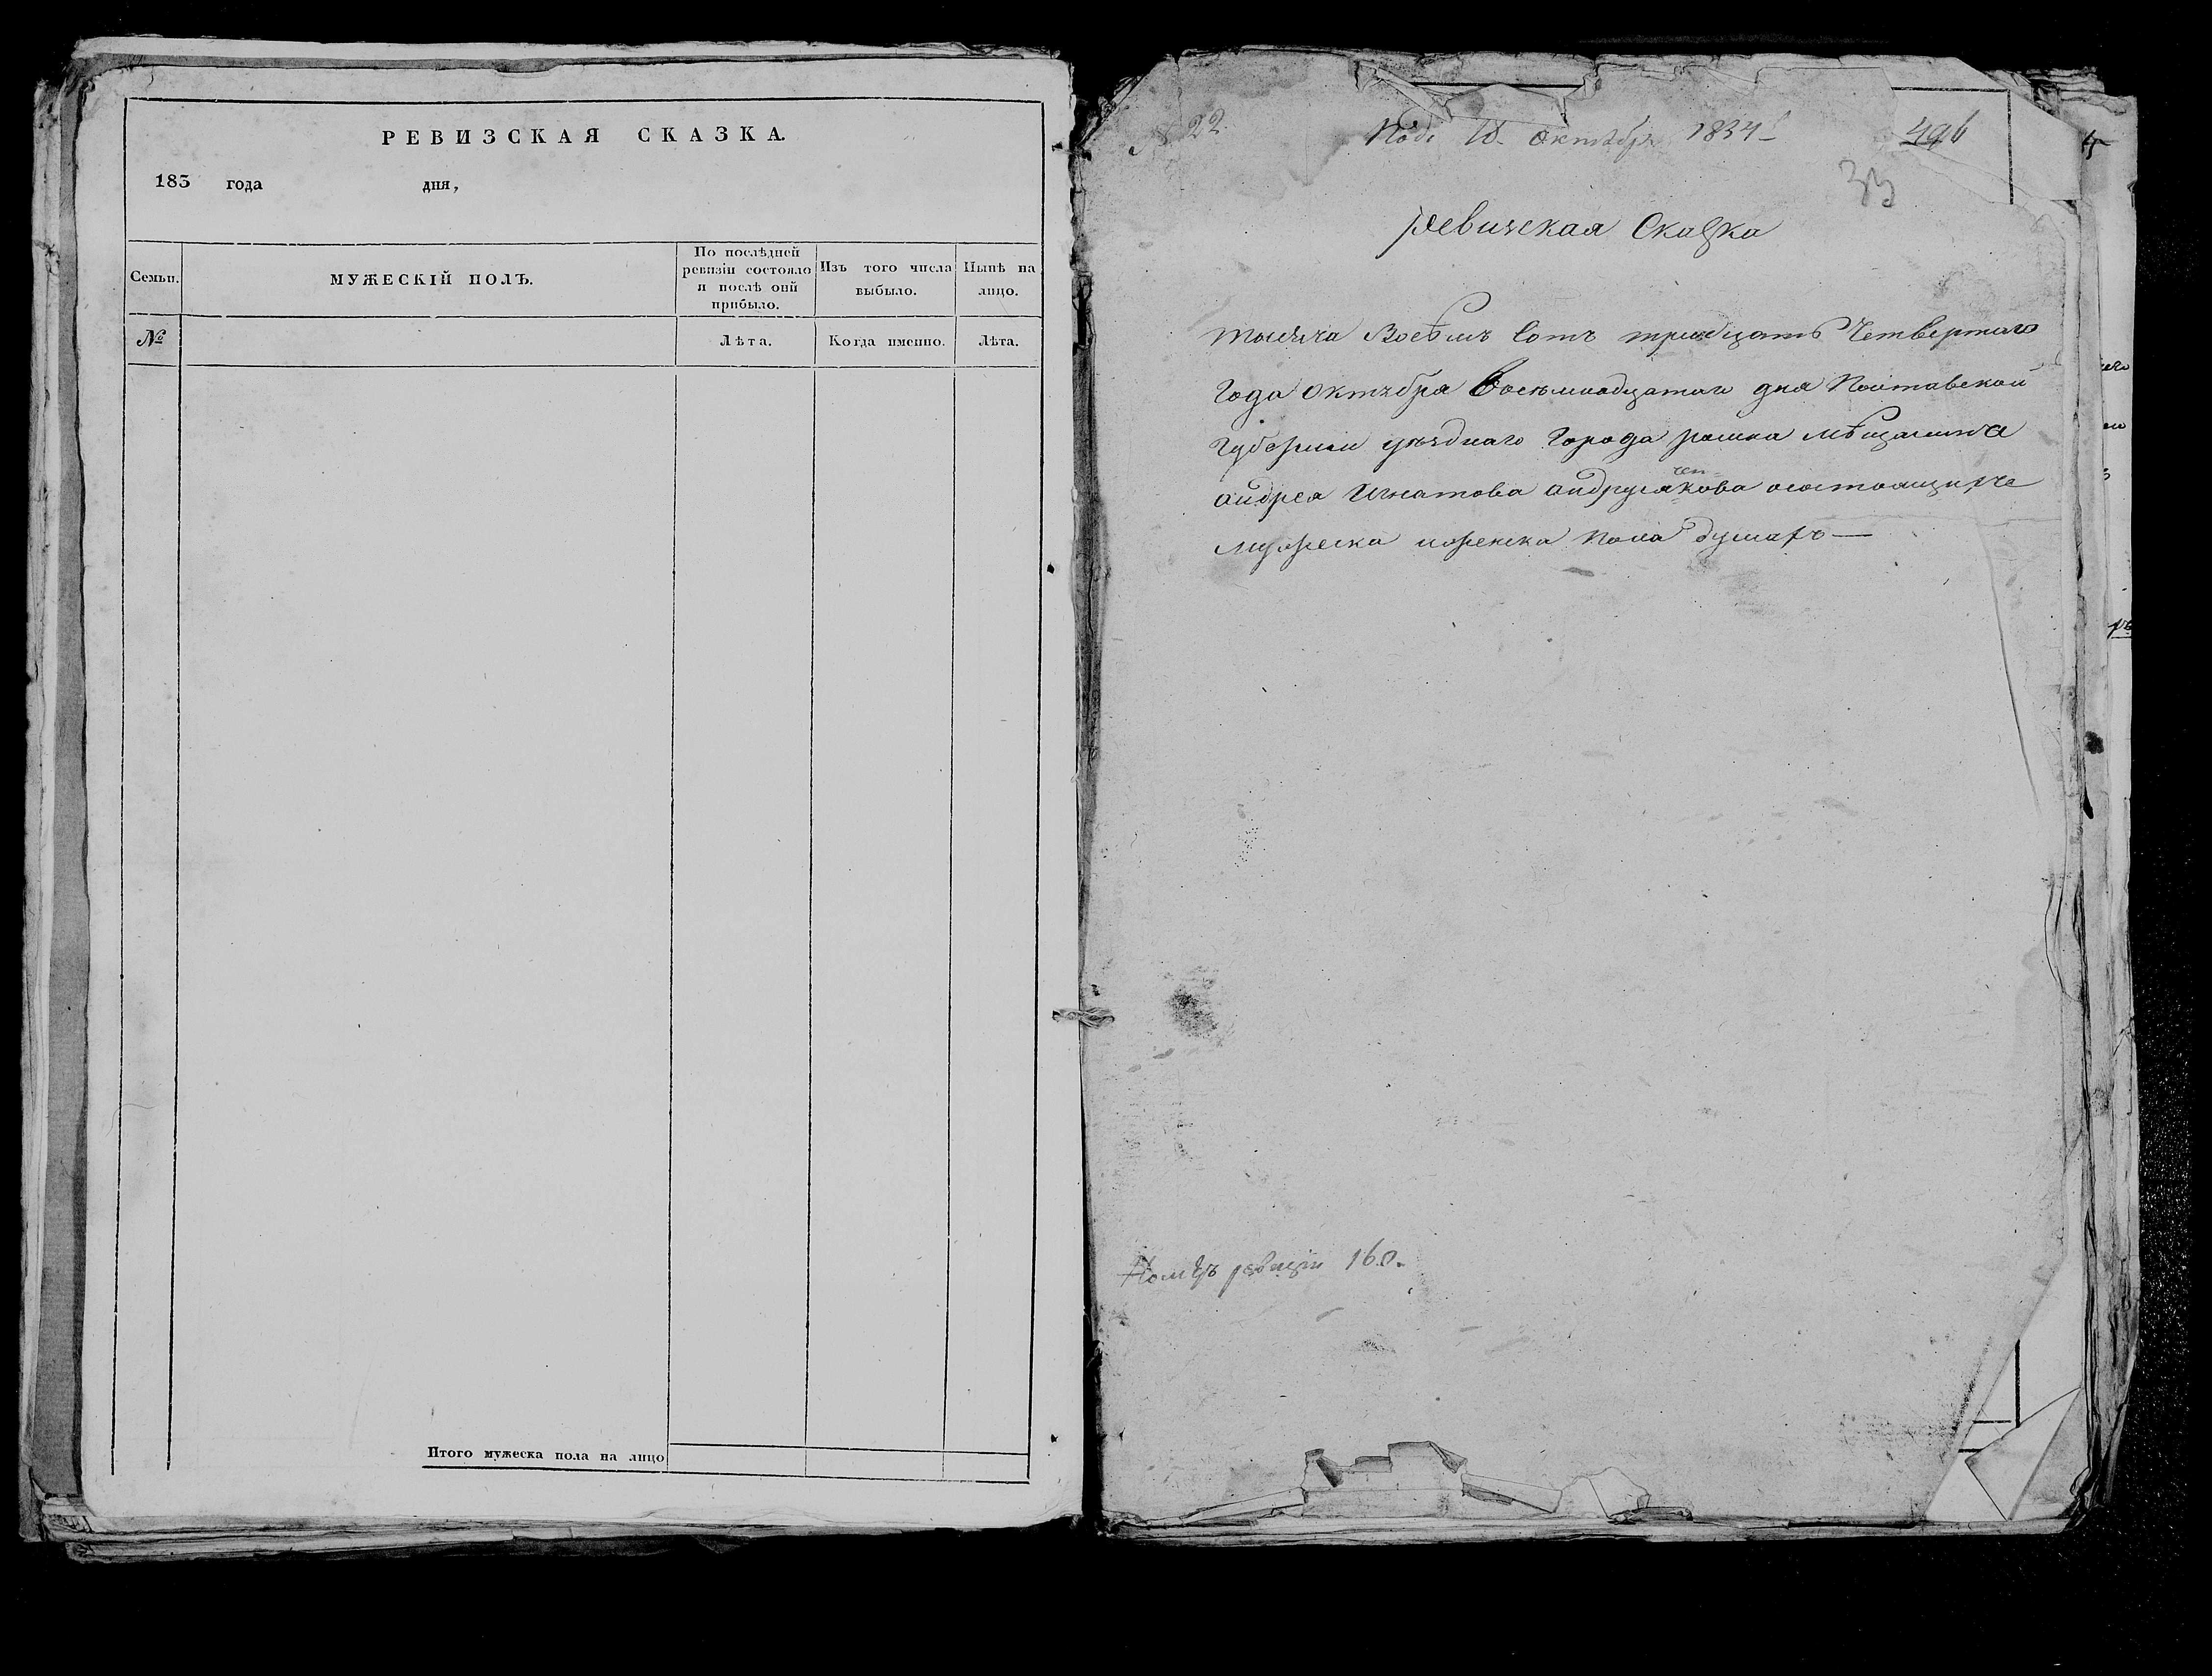 РЕВИЗСКАЯ СКАЗКА.
183 года дня,
Семьи.
МУЖЕСКІЙ ПОЛЪ.
По послѣдней
ревизіи состояло
и послѣ оной
прибыло.
Изъ того числа
выбыло.
Нынѣ на
лицо.
№
Лѣта.
Когда именно.
Лѣта.
Итого мужеска пола на лицо
22.
Под. 18. октября 1834
496
33
Ревизская Сказка
тысяча Восѣмъ Сотъ тридцать Четвертаго
Года октября Восемнадцатаго дня Полтавской
Губернии уѣзднаго Города ромна мѣщанина
андрея Игнатова андрусякова о состоящихъ
мужеска и женска пола душахъ —
Номѣръ ревизіи 160.